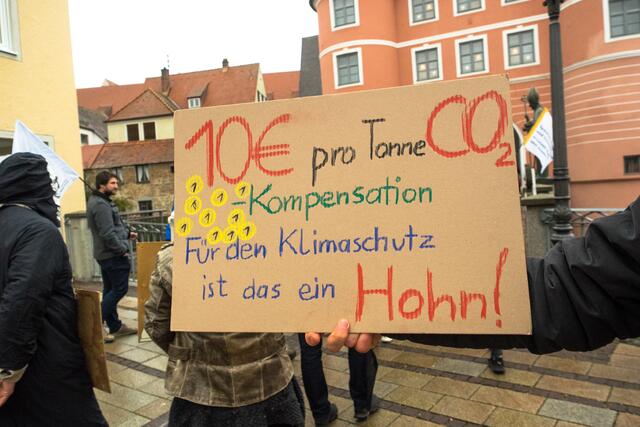 10€ pro Tonne CO₂
1 1 1
1 1 1 -Kompensation
1 1 1 1
Für den Klimaschutz
ist das ein Hohn!